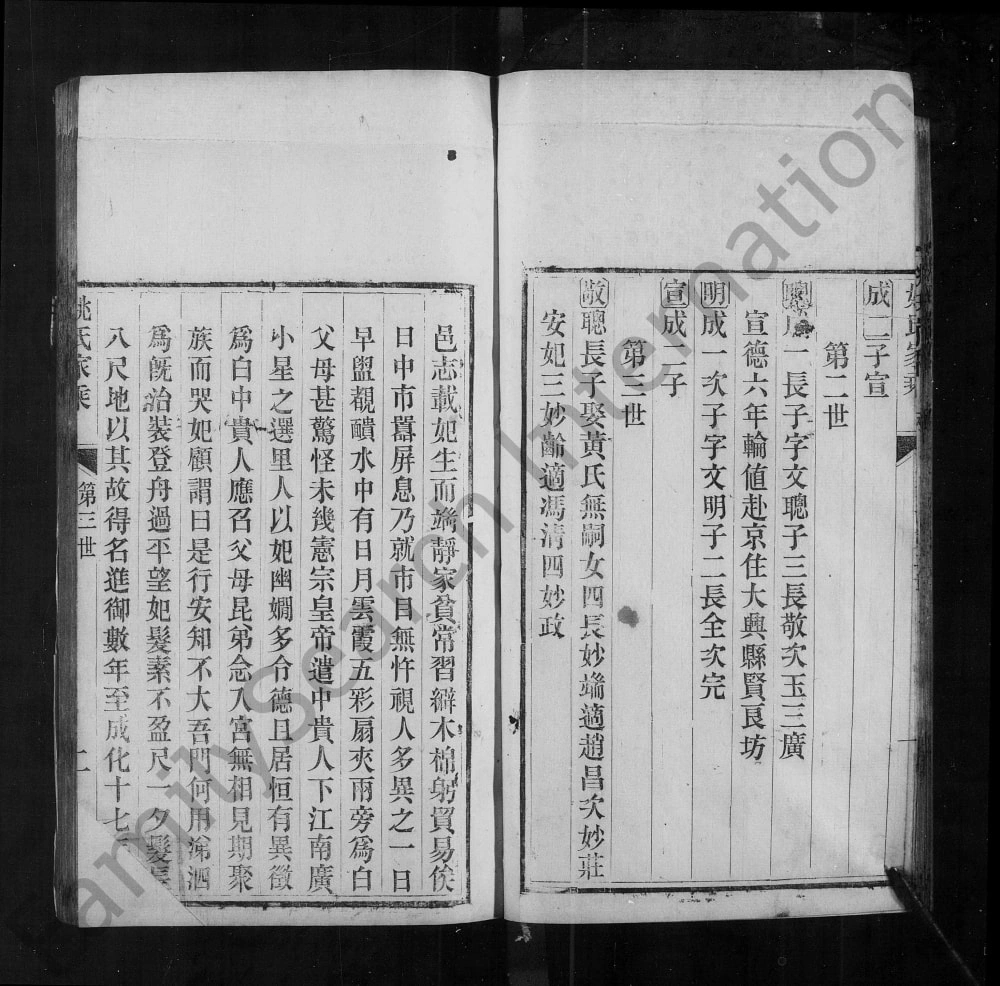 姚氏家乘
成二子宣
第二世
聰一長子字文聰子三長敬次玉三廣
宣德六年輪值赴京住大興縣賢良坊
明成一次子字文明子二長全次完
宣成二子
第三世
敬聰長子娶黃氏無嗣女四長妙端適趙昌次妙莊
安妃三妙齡適馮清四妙政
邑志載妃生而端靜家貧常習辮木棉躬貿易俟
日中市囂屏息乃就市目無忤視人多異之一日
早盥覩靧水中有日月雲霞五彩扇夾兩旁為白
父母甚驚怪未幾憲宗皇帝遣中貴人下江南廣
小星之選里人以妃幽嫺多令德且居恒有異徵
爲白中貴人應召父母昆弟念入宮無相見期聚
族而哭妃顧謂曰是行安知不大吾門何用涕泗
爲旣治裝登舟過平望妃髮素不盈尺一夕髮長
八尺地以其故得名進御數年至成化十七
姚氏家乘
第三世
二
FamilySearch International